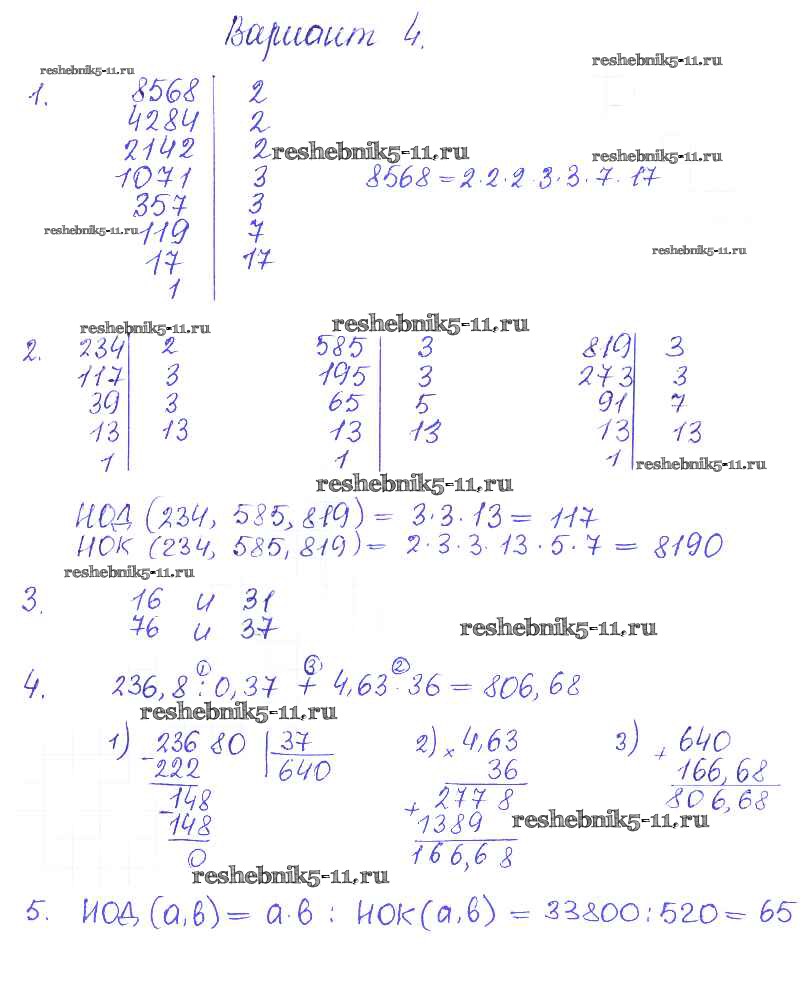 Вариант 4.
reshebnik5-11.ru
reshebnik5-11.ru
1. 8568 | 2
4284 | 2
2142 | 2 reshebnik5-11.ru
reshebnik5-11.ru
1071 | 3 8568 = 2·2·2·3·3·7·17
357 | 3
reshebnik5-11.ru 119 | 7
reshebnik5-11.ru
17 | 17
1
reshebnik5-11.ru reshebnik5-11.ru
2. 234 | 2 585 | 3 819 | 3
117 | 3 195 | 3 273 | 3
39 | 3 65 | 5 91 | 7
13 | 13 13 | 13 13 | 13
1 1 1 reshebnik5-11.ru
reshebnik5-11.ru
НОД (234, 585, 819) = 3·3·13 = 117
НОК (234, 585, 819) = 2·3·3·13·5·7 = 8190
reshebnik5-11.ru
3. 16 и 31
76 и 37 reshebnik5-11.ru
① ③ ②
4. 236,8 : 0,37 + 4,63 · 36 = 806,68
reshebnik5-11.ru
1) 23680 | 37 2) × 4,63 3) + 640
- 222 640 36 166,68
- 148 + 2778 806,68
148 1389 reshebnik5-11.ru
0 166,68
reshebnik5-11.ru
5. НОД (а,в) = а·в : НОК (а,в) = 33800 : 520 = 65